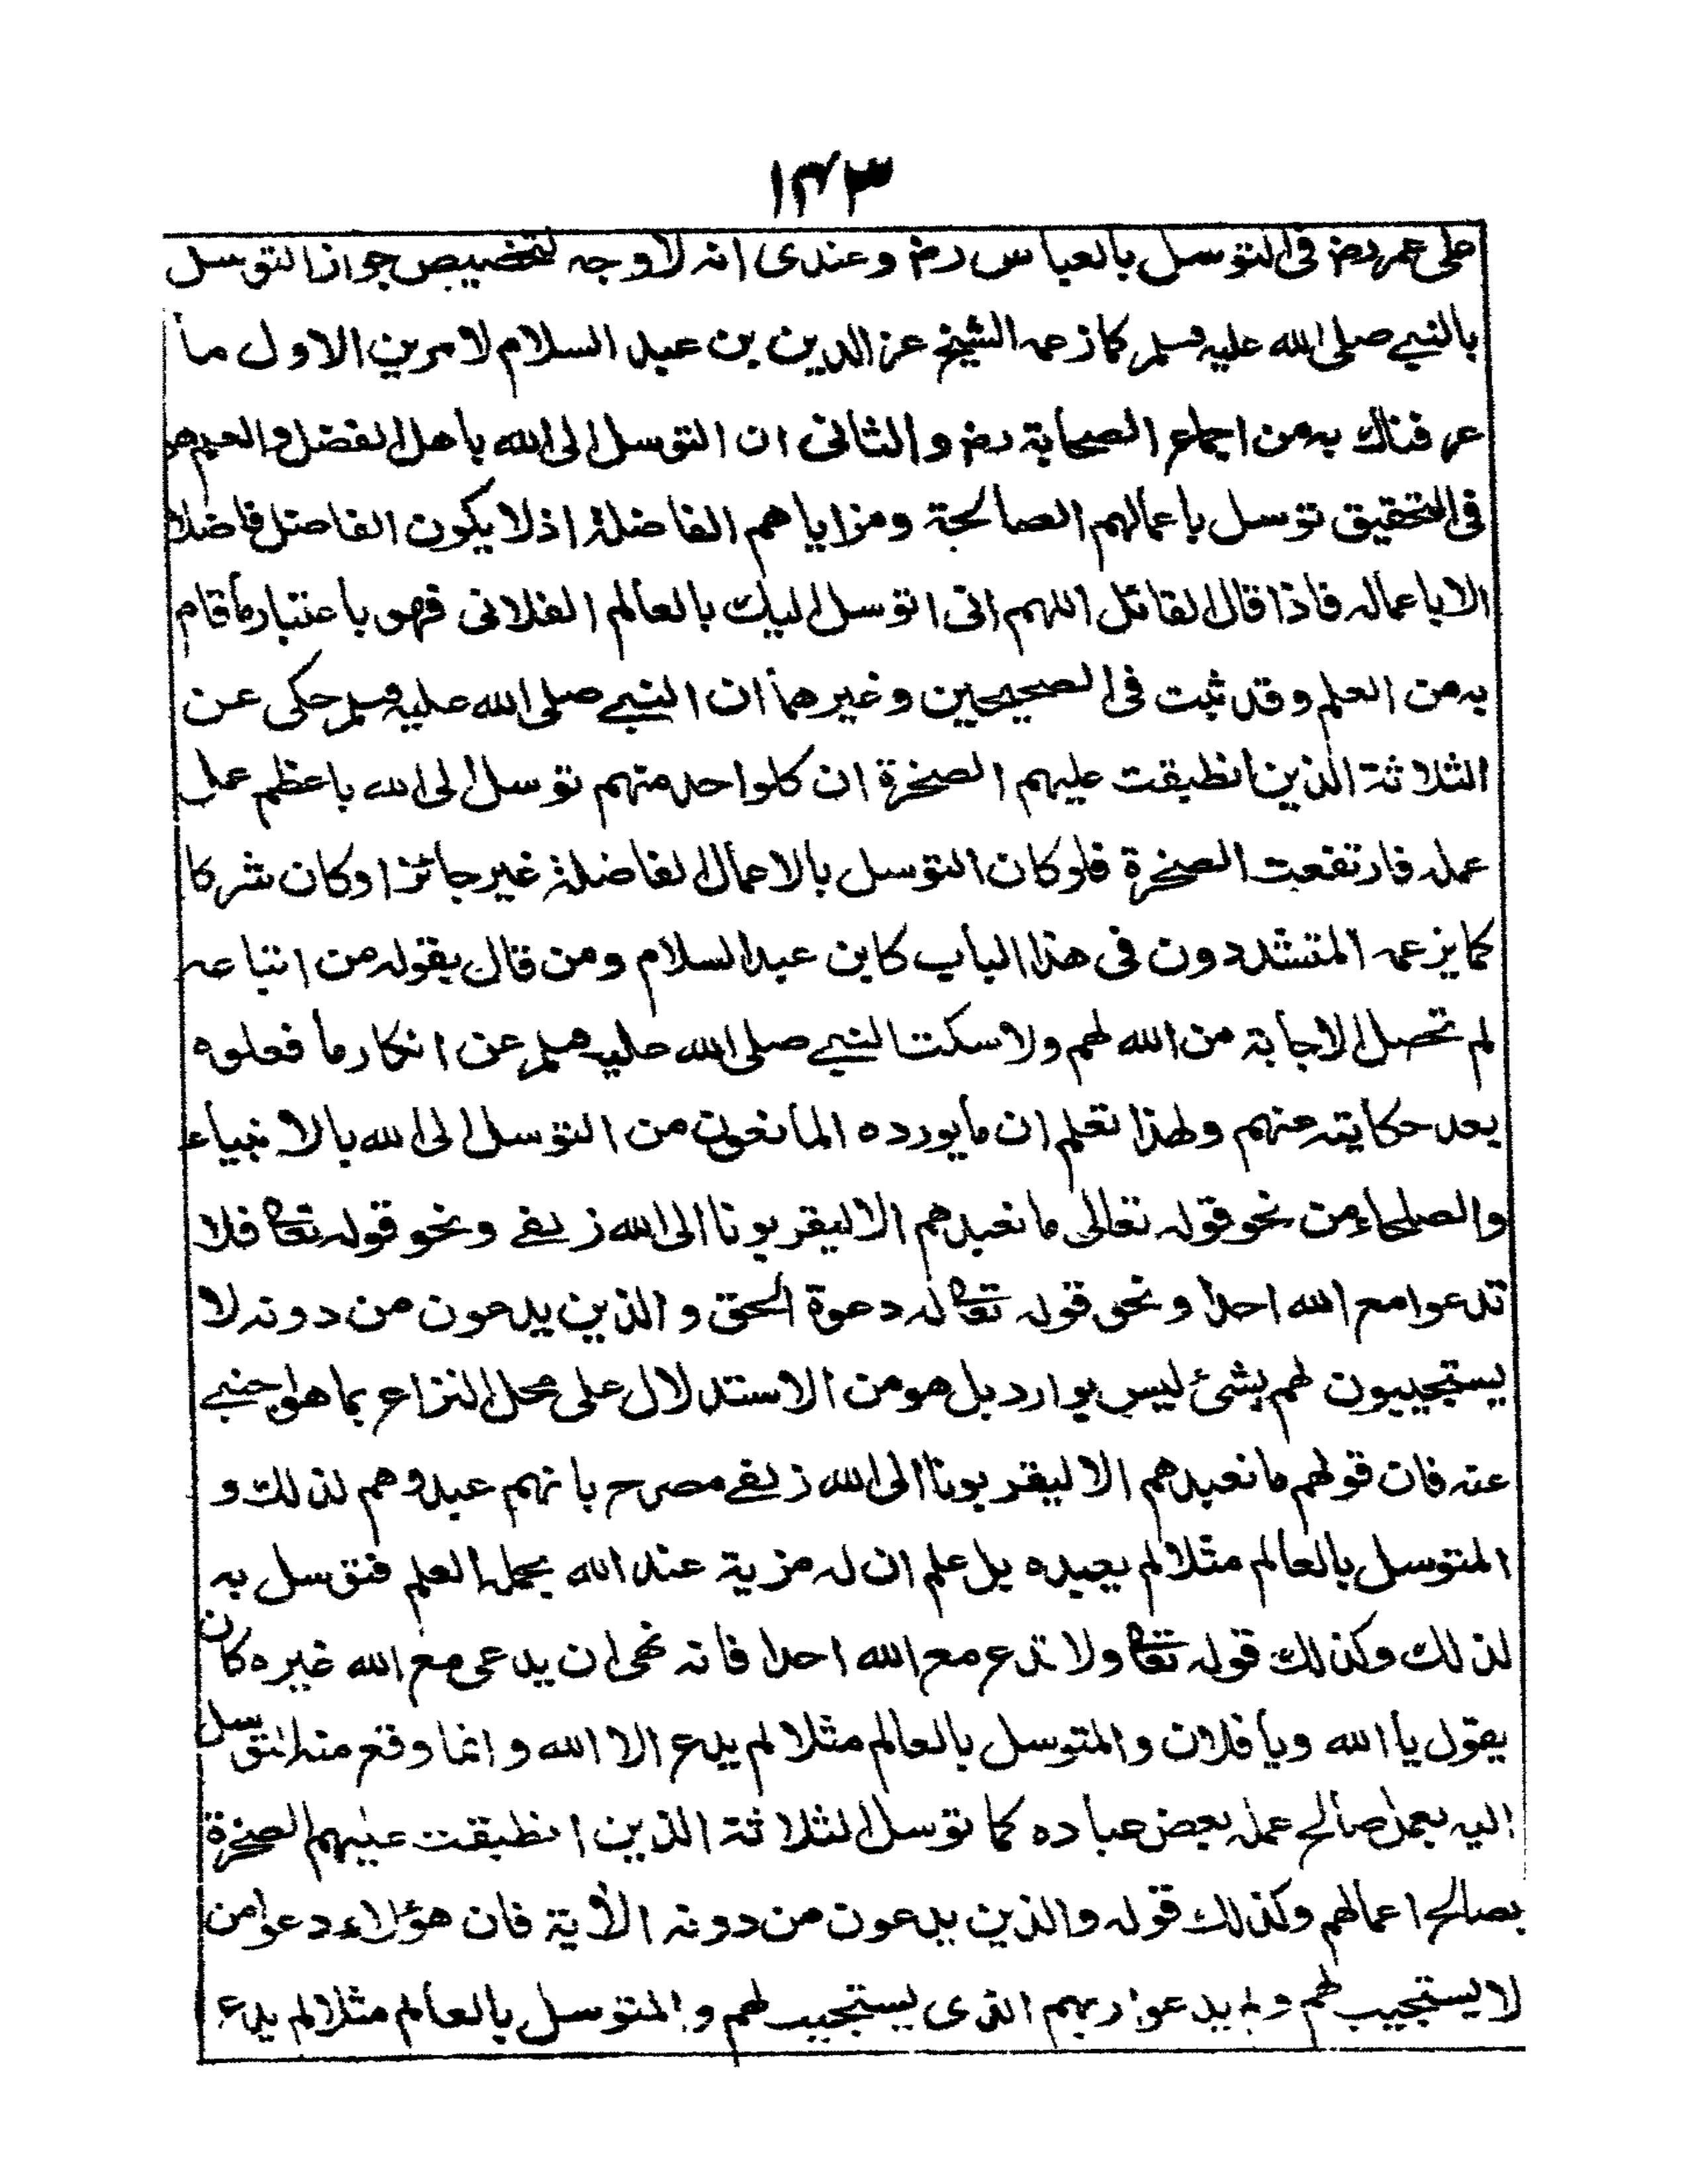 ١٤٣
على عمر رض فى التوسل بالعباس رض وعندى انه لا وجه لتخصيص جواز التوسل
بالنبي صلى الله عليه وسلم كما زعمه الشيخ عز الدين بن عبد السلام لامرين الاول ما
عرفناك به من اجماع الصحابة رض والثانى ان التوسل الى الله باهل الفضل والعلم هو
فى التحقيق توسل باعمالهم الصالحة ومزاياهم الفاضلة اذ لا يكون الفاضل فاضلا
الا باعماله فاذا قال القائل اللهم انى اتوسل اليك بالعالم الفلانى فهو باعتبار ما قام
به من العلم وقد ثبت فى الصحيحين وغيرهما ان النبي صلى الله عليه وسلم حكى عن
الثلاثة الذين انطبقت عليهم الصخرة ان كلواحد منهم توسل الى الله باعظم عمل
عمله فارتفعت الصخرة فلو كان التوسل بالاعمال الفاضلة غير جائز اوكان شركا
كما يزعمه المتشددون فى هذا الباب كابن عبد السلام ومن قال بقوله من اتباعه
لم تحصل الاجابة من الله لهم ولا سكت النبي صلى الله عليه وسلم عن انكار ما فعلوه
بعد حكايته عنهم ولهذا تعلم ان ما يورده المانعون من التوسل الى الله بالانبياء
والصلحاء من نحو قوله تعالى ما نعبدهم الا ليقربونا الى الله زلفے ونحو قوله تعا فلا
تدعوا مع الله احدا ونحو قوله تعا له دعوة الحق والذين يدعون من دونه لا
يستجيبون لهم بشئ ليس بوارد بل هو من الاستدلال على محل النزاع بما هو اجنبے
عنه فان قولهم ما نعبدهم الا ليقربونا الى الله زلفے مصرح بانهم عبدوهم لذلك و
المتوسل بالعالم مثلا لم يعبده بل علم ان له مزية عند الله بحمله العلم فتوسل به
لذلك وكذلك قوله تعا ولا تدع مع الله احدا فانه نهى ان يدعى مع الله غيره كان
يقول يا الله ويا فلان والمتوسل بالعالم مثلا لم يدع الا الله وانما وقع منه التوسل
اليه بعمل صالح عمله بعض عباده كما توسل الثلاثة الذين انطبقت عليهم الصخرة
بصالح اعمالهم وكذلك قوله والذين يدعون من دونه الأية فان هؤلاء دعوا من
لا يستجيب لهم ولم يدعوا ربهم الذى يستجيب لهم والمتوسل بالعالم مثلا لم يدع